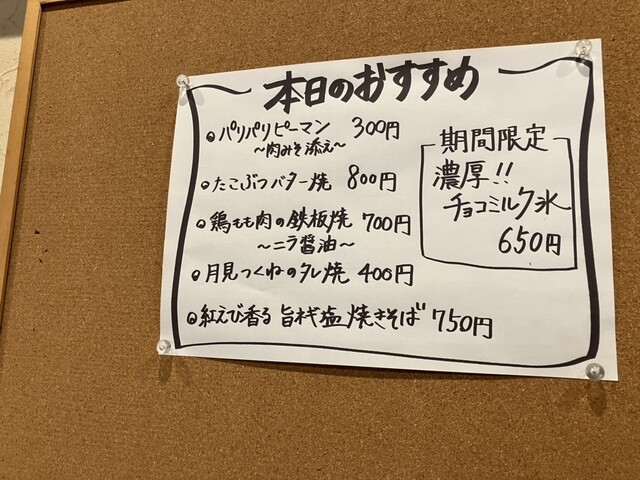 本日のおすすめ
◎パリパリピーマン 300円
～肉みそ添え～
◎たこぶつバター焼 800円
◎鶏もも肉の鉄板焼 700円
～ニラ醤油～
◎月見つくねのタレ焼 400円
◎紅えび香る 旨ネギ塩焼きそば 750円
期間限定
濃厚!!
チョコミルク氷
650円